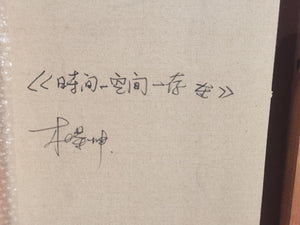 《时间—空间—存在》